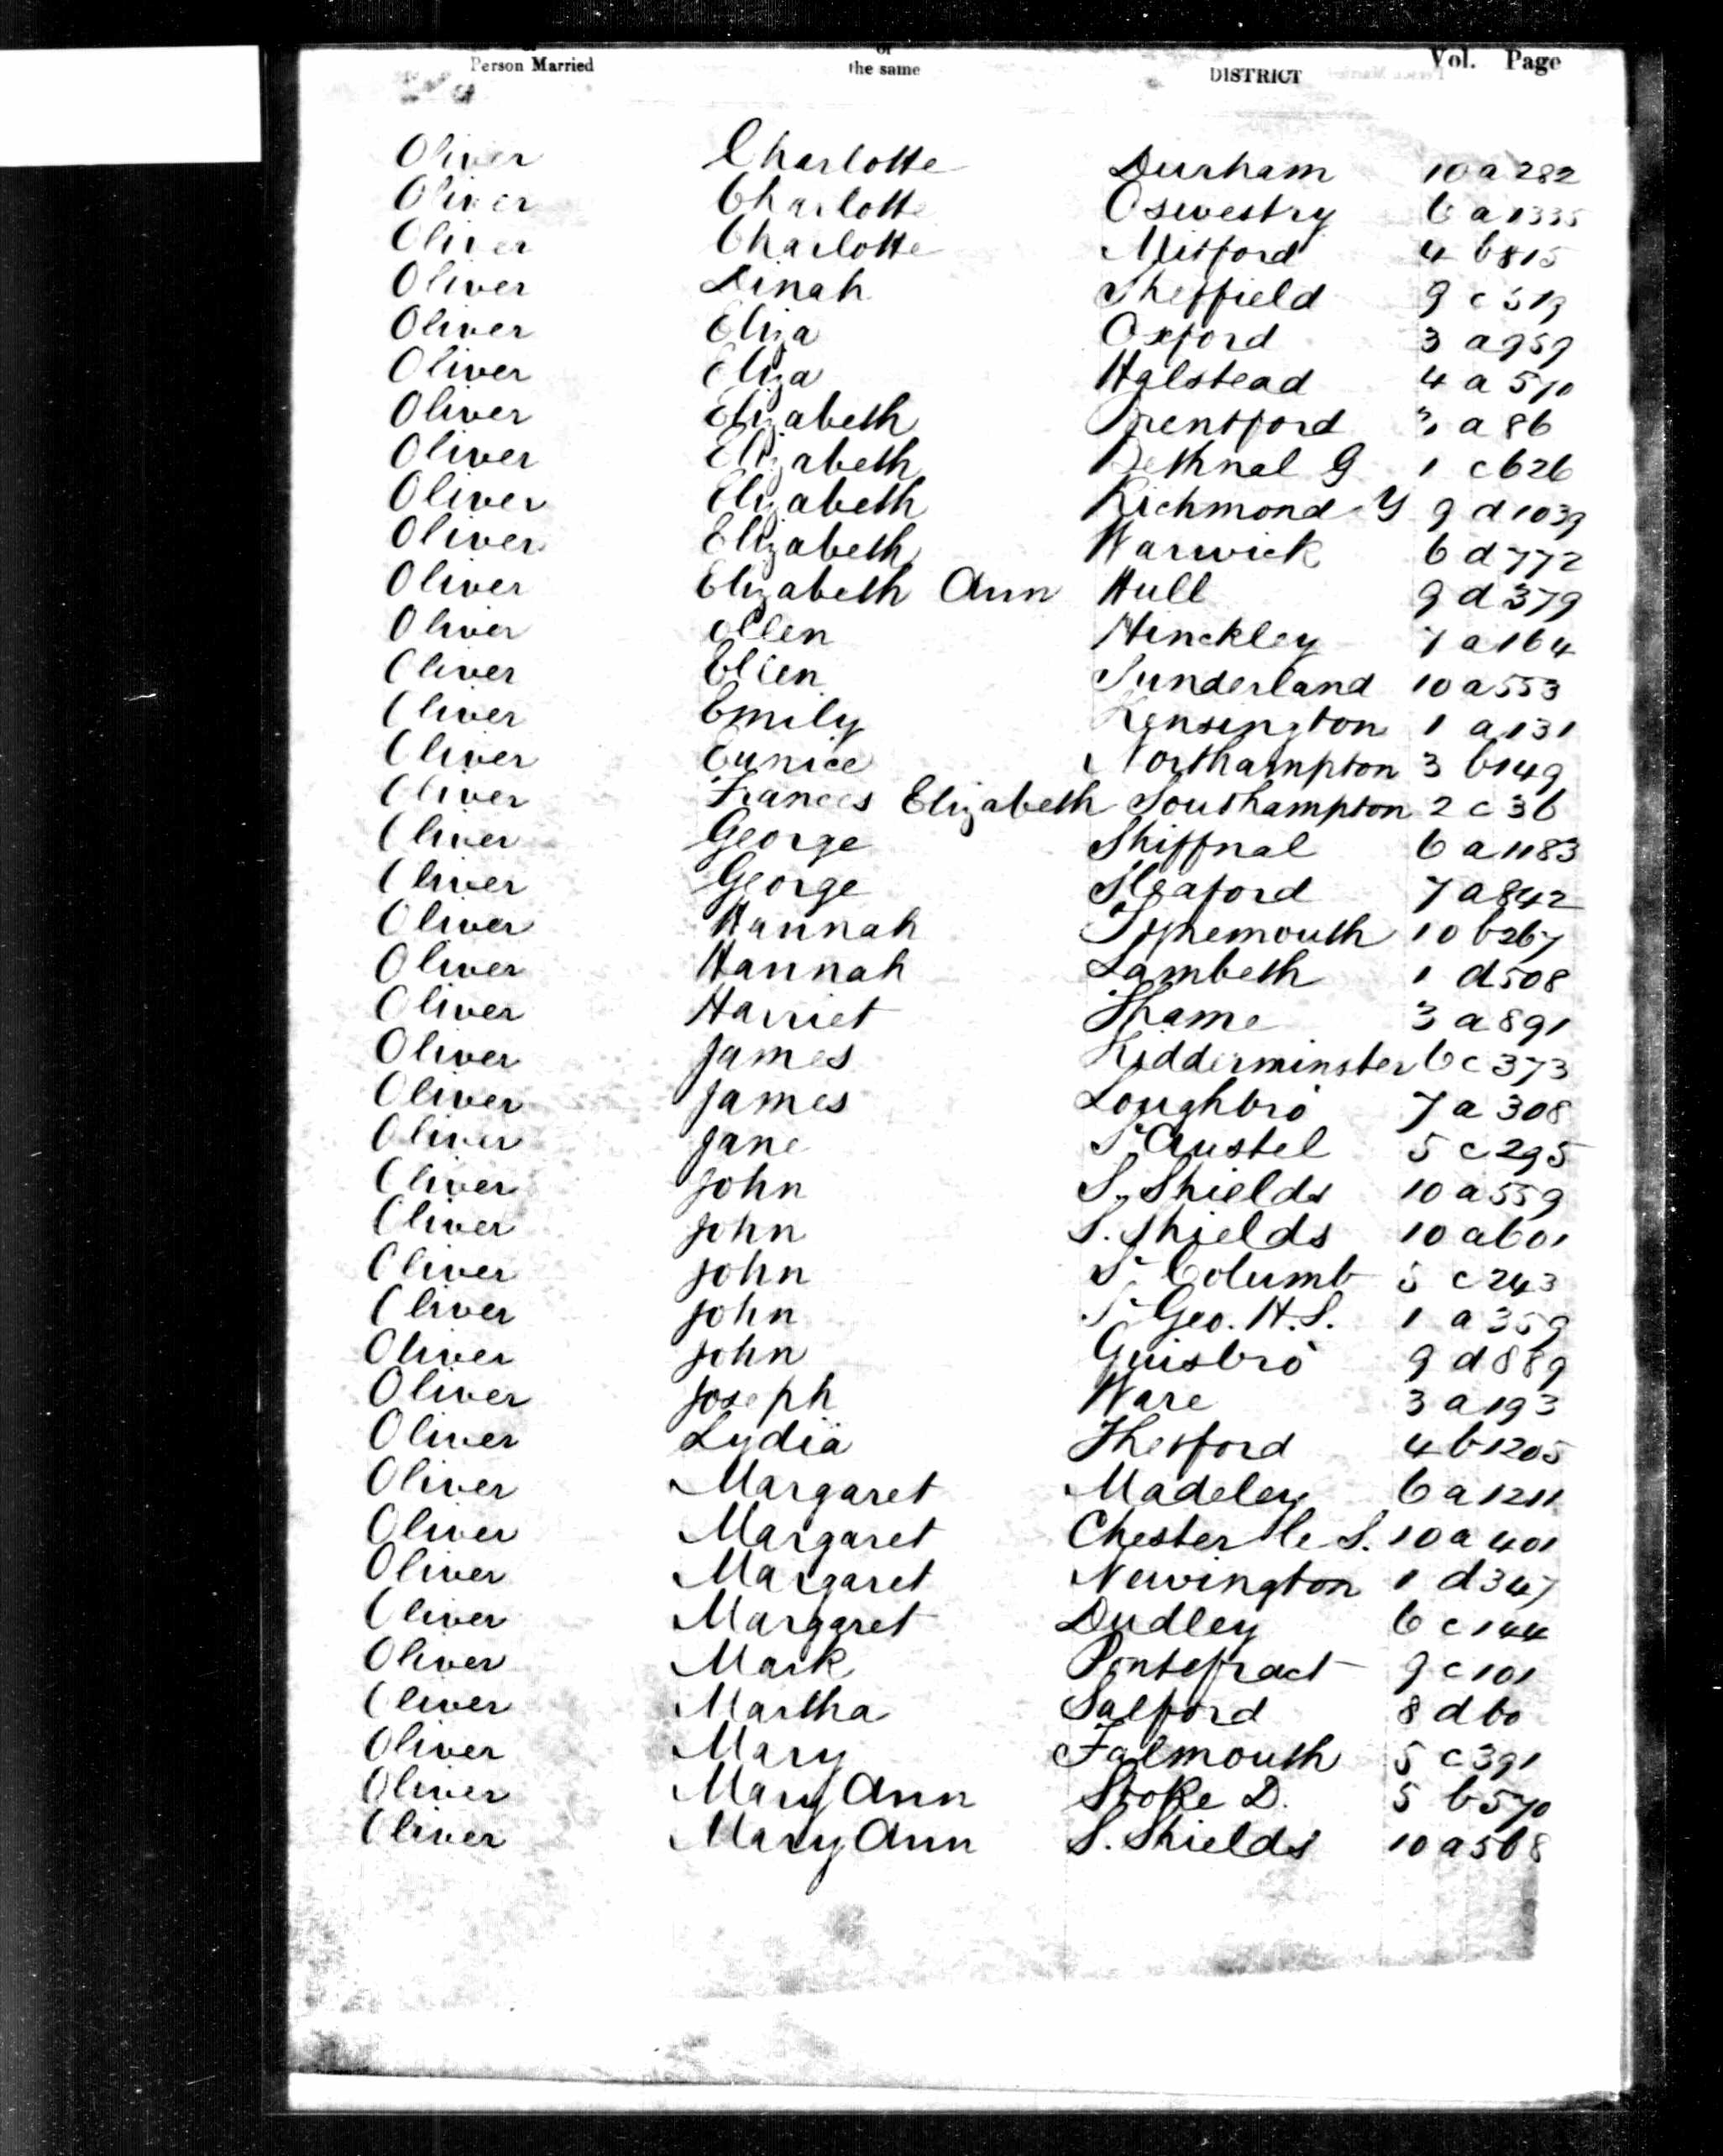 or or
Person Married the same DISTRICT Vol. Page
Oliver Charlotte Durham 10 a 282
Oliver Charlotte Oswestry 6 a 1335
Oliver Charlotte Mitford 4 b 815
Oliver Dinah Sheffield 9 c 519
Oliver Eliza Oxford 3 a 959
Oliver Eliza Halstead 4 a 570
Oliver Elizabeth Brentford 3 a 86
Oliver Elizabeth Bethnal G 1 c 626
Oliver Elizabeth Richmond Y 9 d 1039
Oliver Elizabeth Warwick 6 d 772
Oliver Elizabeth Ann Hull 9 d 379
Oliver Ellen Hinckley 7 a 164
Oliver Ellen Sunderland 10 a 553
Oliver Emily Kensington 1 a 131
Oliver Eunice Northampton 3 b 149
Oliver Frances Elizabeth Southampton 2 c 36
Oliver George Shiffnal 6 a 1183
Oliver George Sleaford 7 a 842
Oliver Hannah Tynemouth 10 b 267
Oliver Hannah Lambeth 1 d 508
Oliver Harriet Thame 3 a 891
Oliver James Kidderminster 6 c 373
Oliver James Loughbro 7 a 308
Oliver Jane St Austel 5 c 295
Oliver John S. Shields 10 a 559
Oliver John S. Shields 10 a 601
Oliver John St Columb 5 c 243
Oliver John St Geo. H.S. 1 a 359
Oliver John Guisbro 9 d 889
Oliver Joseph Ware 3 a 193
Oliver Lydia Thetford 4 b 1205
Oliver Margaret Madeley 6 a 1211
Oliver Margaret Chester le S. 10 a 401
Oliver Margaret Newington 1 d 347
Oliver Margaret Dudley 6 c 144
Oliver Mark Pontefract 9 c 101
Oliver Martha Salford 8 d 60
Oliver Mary Falmouth 5 c 391
Oliver Mary Ann Stoke D. 5 b 570
Oliver Mary Ann S. Shields 10 a 568